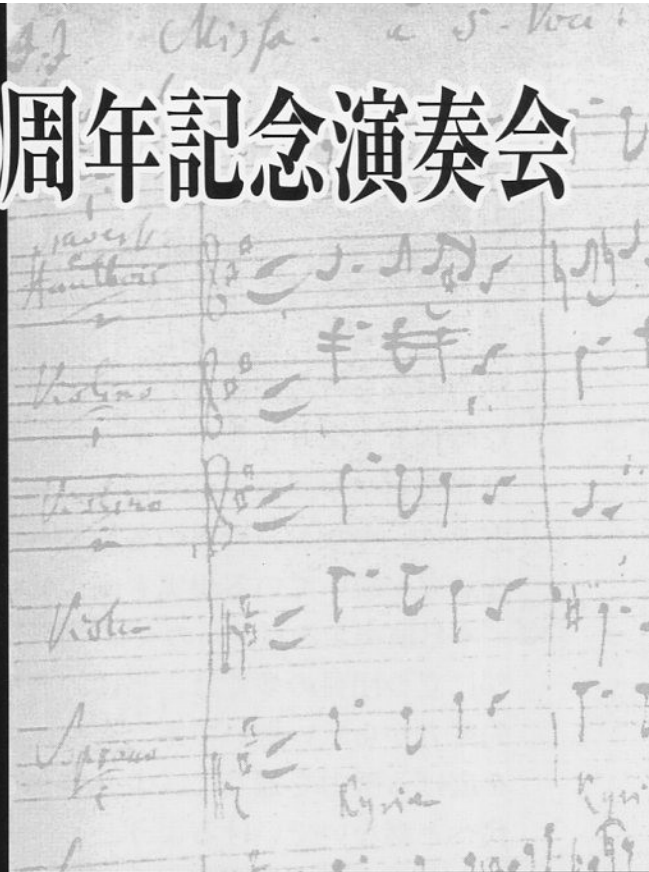 J.J. Missa. a 5. Voci
周年記念演奏会
Hautbois
Violino
Violino
Viola
Soprano
Kyrie Kyri